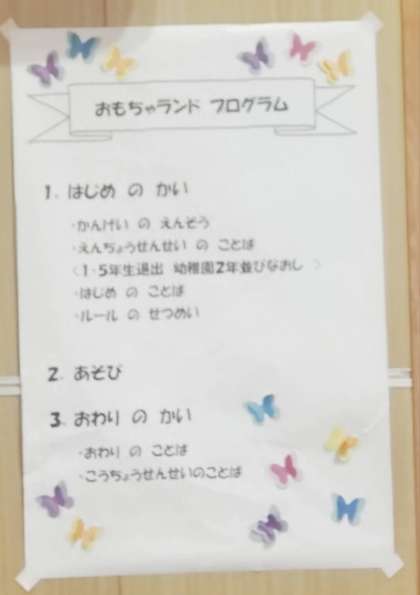 おもちゃランド プログラム
1. はじめ の かい
・かんげい の えんそう
・えんちょうせんせい の ことば
〈1・5年生退出 幼稚園2年並びなおし 〉
・はじめ の ことば
・ルール の せつめい
2. あそび
3. おわり の かい
・おわり の ことば
・こうちょうせんせいのことば